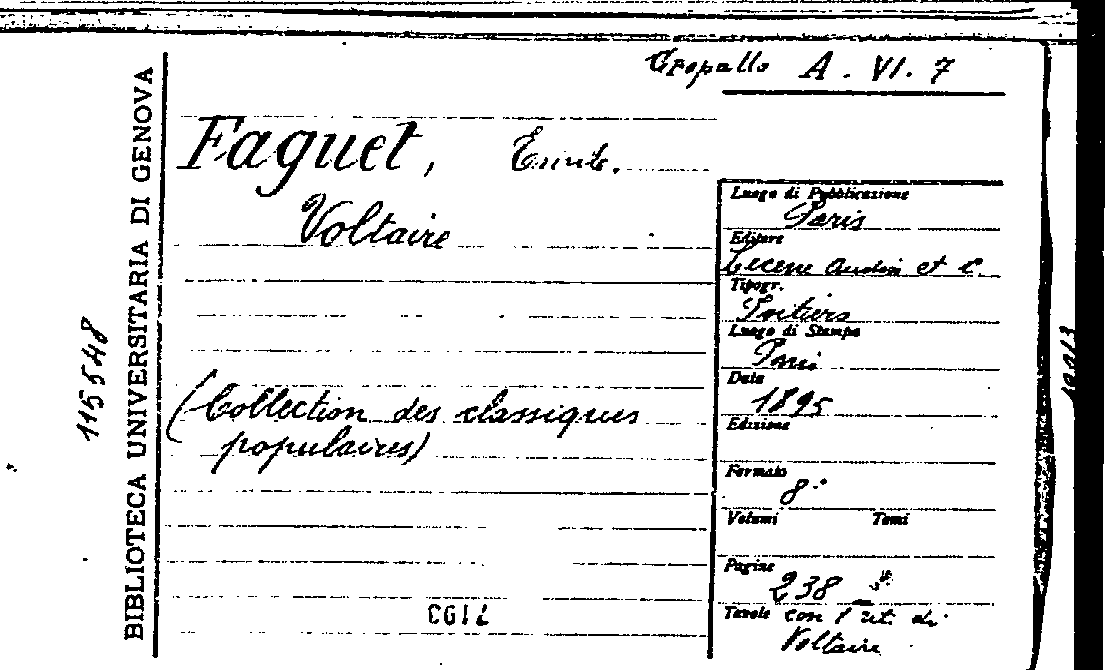 Gropallo A. VI. 7
BIBLIOTECA UNIVERSITARIA DI GENOVA
115548
Faguet, Emile.
Voltaire
(Collection des classiques
populaires)
Luogo di Pubblicazione
Paris
Editore
Lecene Oudin et C
Tipogr.
Poitiers
Luogo di Stampa
Paris
Data
1895
Edizione
Formato
8°
Volumi Tomi
Pagine
238
Tavole con rit. di
Voltaire